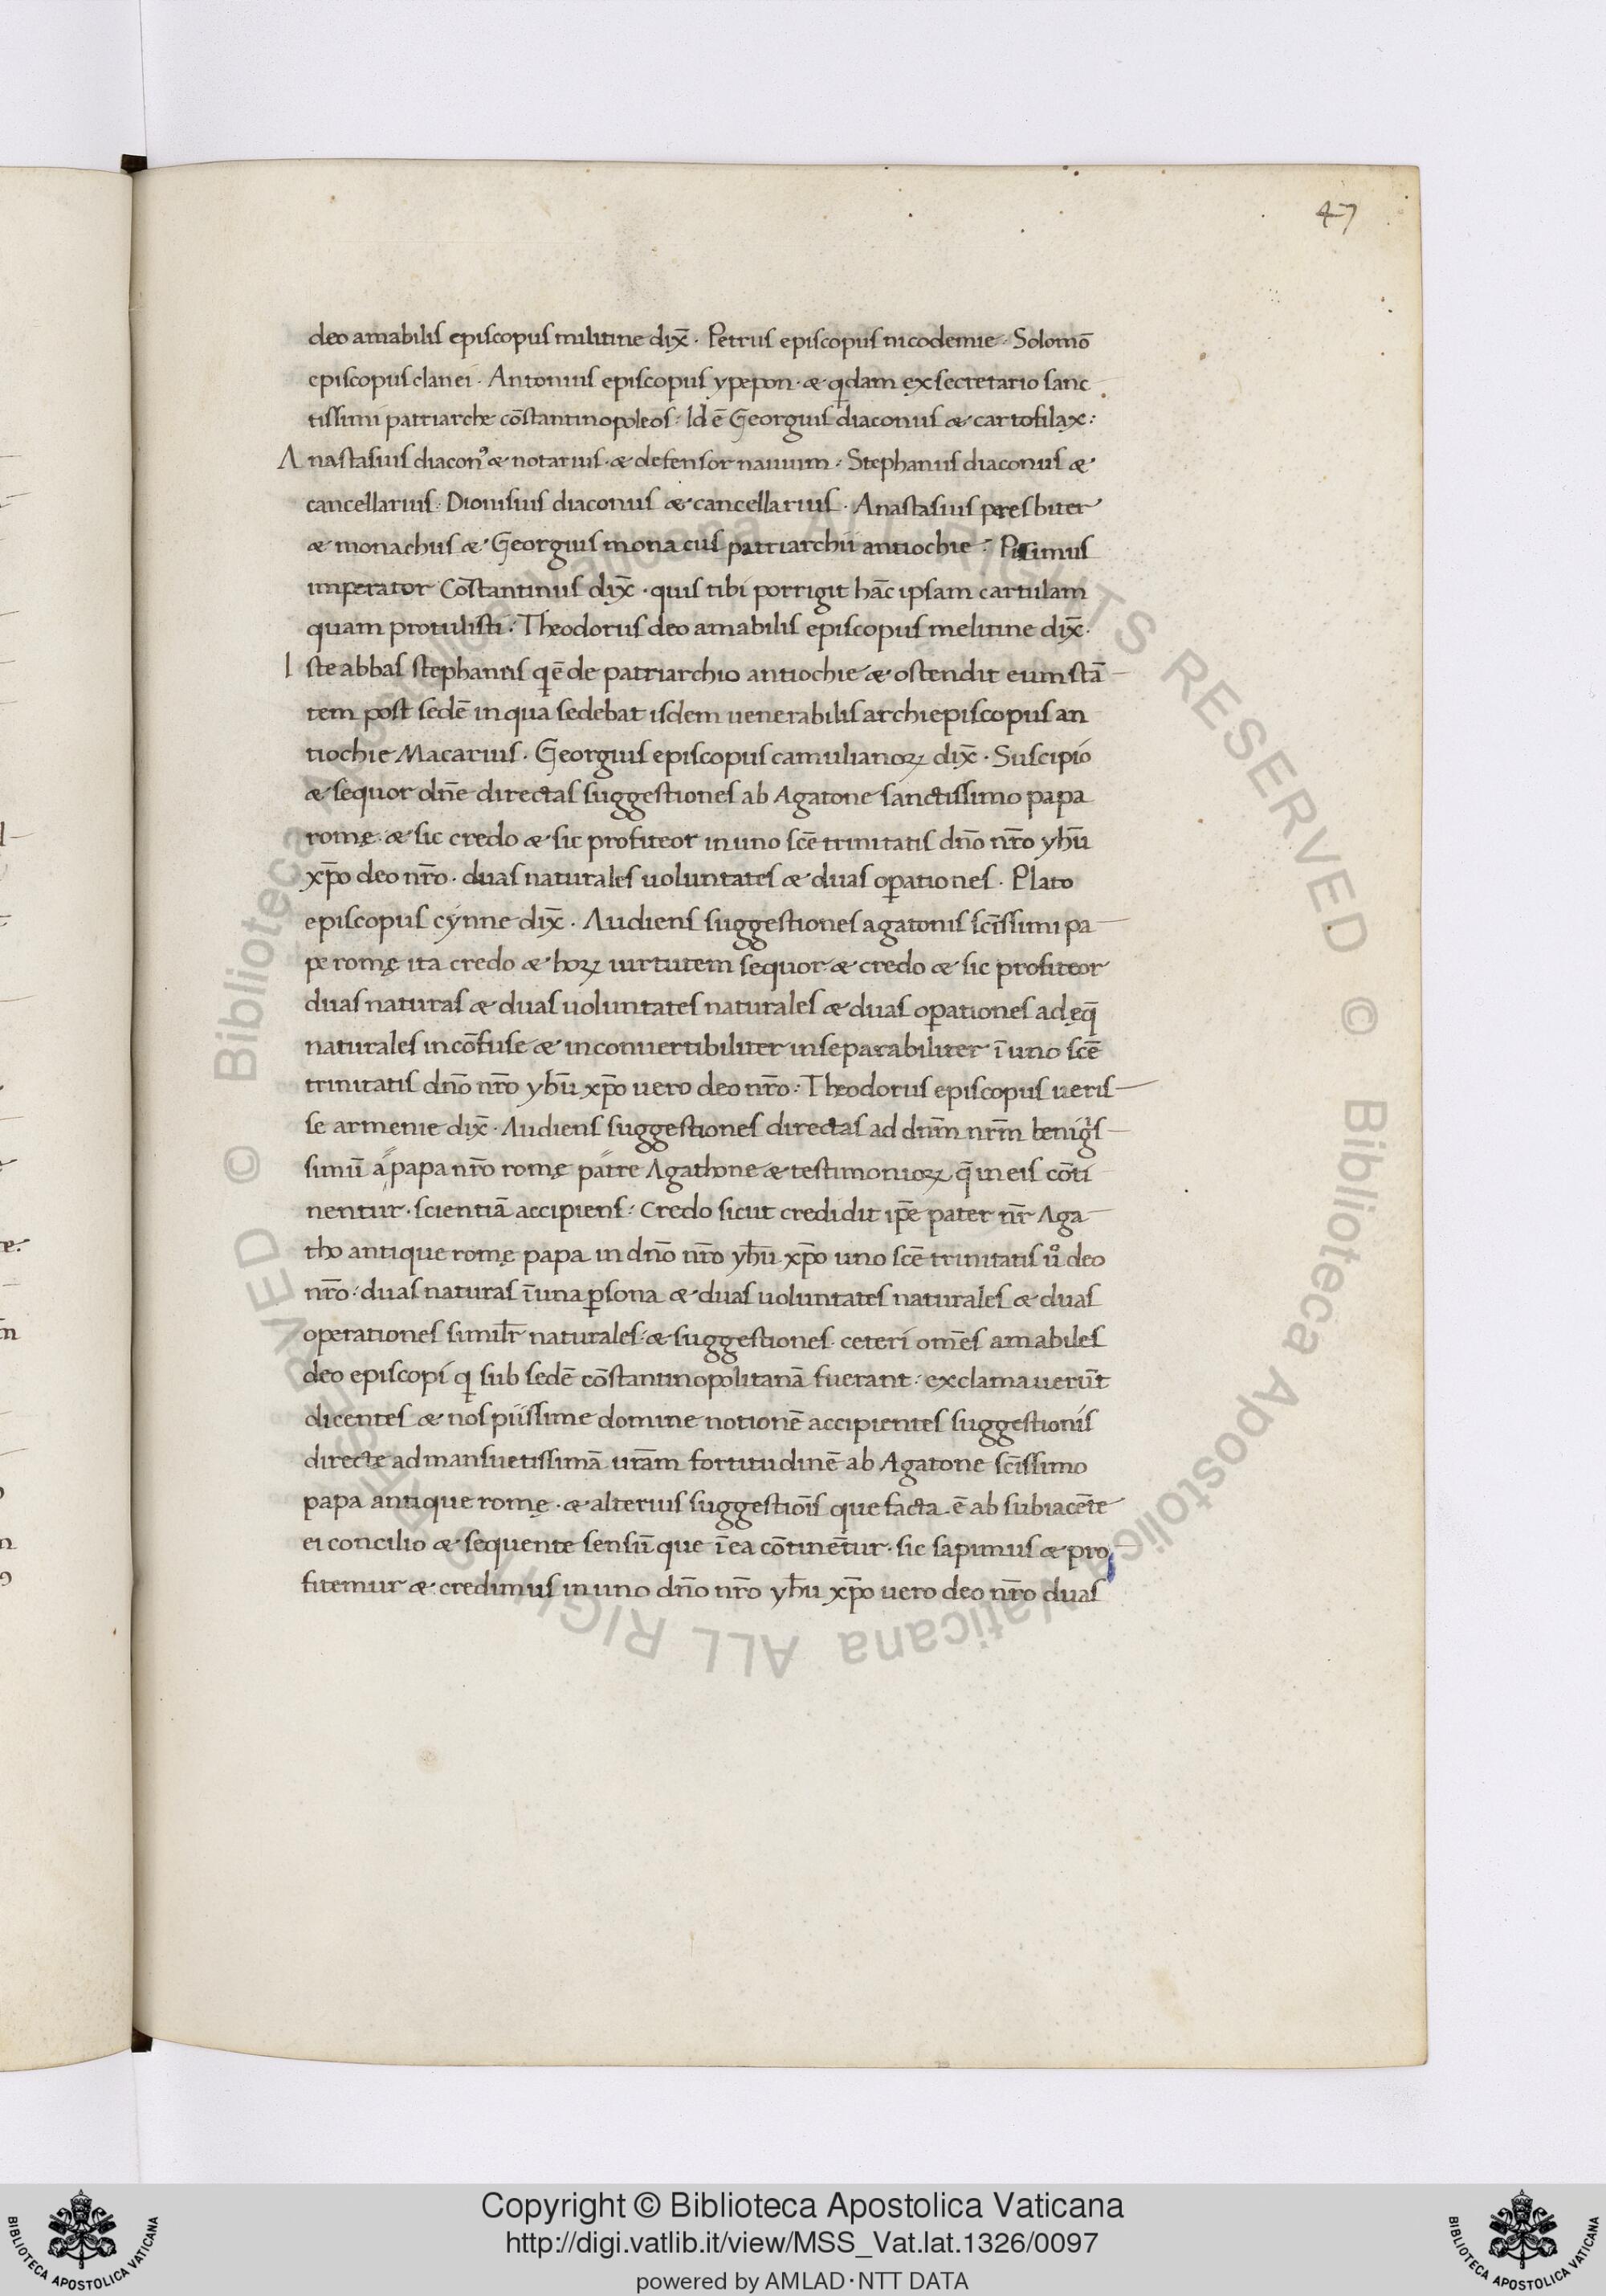 47
deo amabilis episcopus militine dix̄ · Petrus episcopus nicodemie · Solomō
episcopus clanei · Antonius episcopus ypepon · & qdam ex secretario sanc
tissimi patriarche cōstantinopoleos : Id ē Georgius diaconus & cartofilax :
Anastasius diaconꝰ & notarius · & defensor nauium : Stephanus diaconus &
cancellarius · Dionisius diaconus & cancellarius · Anastasius presbiter
& monachus & Georgius monacus patriarchii antiochie : Piisimus
imperator Cōstantinus dix̄ · quis tibi porrigit hāc ipsam cartulam
quam protulisti : Theodorus deo amabilis episcopus melitine dix̄ ·
Iste abbas stephanus q ē de patriarchio antiochie & ostendit eum stā
tem post sedē in qua sedebat isdem uenerabilis archiepiscopus an
tiochie Macarius · Georgius episcopus camulianoꝝ dix̄ · Suscipio
& sequor dn̄e directas suggestiones ab Agatone sanctissimo papa
romę · & sic credo & sic profiteor in uno scē trinitatis dn̄o nr̄o yhū
xp̄o deo nr̄o · duas naturales uoluntates & duas oꝑationes · Plato
episcopus cynne dix̄ · Audiens suggestiones agatonis scīssimi pa
pe romę ita credo & hoꝝ uirtutem sequor & credo & sic profiteor
duas naturas & duas uoluntates naturales & duas oꝑationes adęq̄
naturales incōfuse & inconuertibiliter inseparabiliter ī uno scē
trinitatis dn̄o nr̄o yhū xp̄o uero deo nr̄o : Theodorus episcopus ueris
se armenie dix̄ · Audiens suggestiones directas ad dnm̄ nrm̄ benigis
simū a papa nr̄o romę patre Agathone & testimonioꝝ q̄ in eis cōti
nentur · scientiā accipiens : Credo sicut credidit ip̄e pater nr̄ Aga
tho antique romę papa in dn̄o nr̄o yhū xp̄o uno scē trinitatis uͦ deo
nr̄o : duas naturas ī una ꝑsona & duas uoluntates naturales & duas
operationes similr̄ naturales : & suggestiones · ceteri omēs amabiles
deo episcopi q sub sedē cōstantinopolitanā fuerant : exclamauerūt
dicentes & nos piissime domine notionē accipientes suggestionis
directe ad mansuetissimā urām fortitudinē ab Agatone scīssimo
papa antique romę · & alterius suggestiōis que facta ē ab subiacēte
ei concilio & sequente sensū que ī ea cōtinētur · sic sapimus & pro
fitemur & credimus in uno dn̄o nr̄o yhū xp̄o uero deo nr̄o duas
© Biblioteca Apostolica Vaticana ALL RIGHTS RESERVED
© Biblioteca Apostolica Vaticana ALL RIGHTS RESERVED
Copyright © Biblioteca Apostolica Vaticana
http://digi.vatlib.it/view/MSS_Vat.lat.1326/0097
powered by AMLAD·NTT DATA
BIBLIOTECA APOSTOLICA VATICANA
BIBLIOTECA APOSTOLICA VATICANA